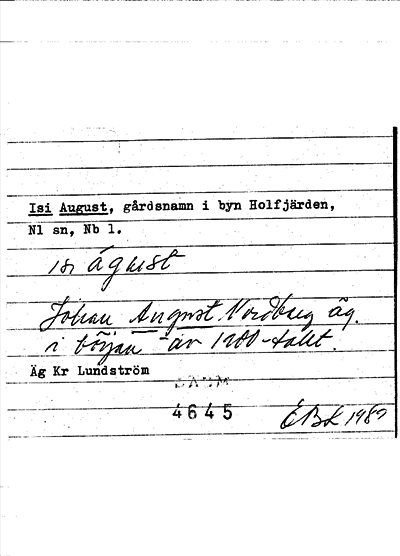 Isi August, gårdsnamn i byn Holfjärden,
Nl sn, Nb l.
isi águst
Johan August Nordberg äg.
i början av 1900-talet.
Äg Kr Lundström
DAUM
4645
EBK 1987